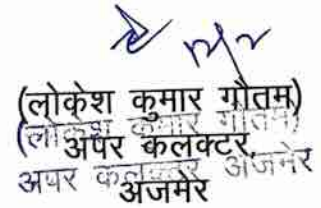 (लोकेश कुमार गौतम)
(लोकेश कुमार गौतम)
अपर कलक्टर,
अपर कलक्टर अजमेर
अजमेर